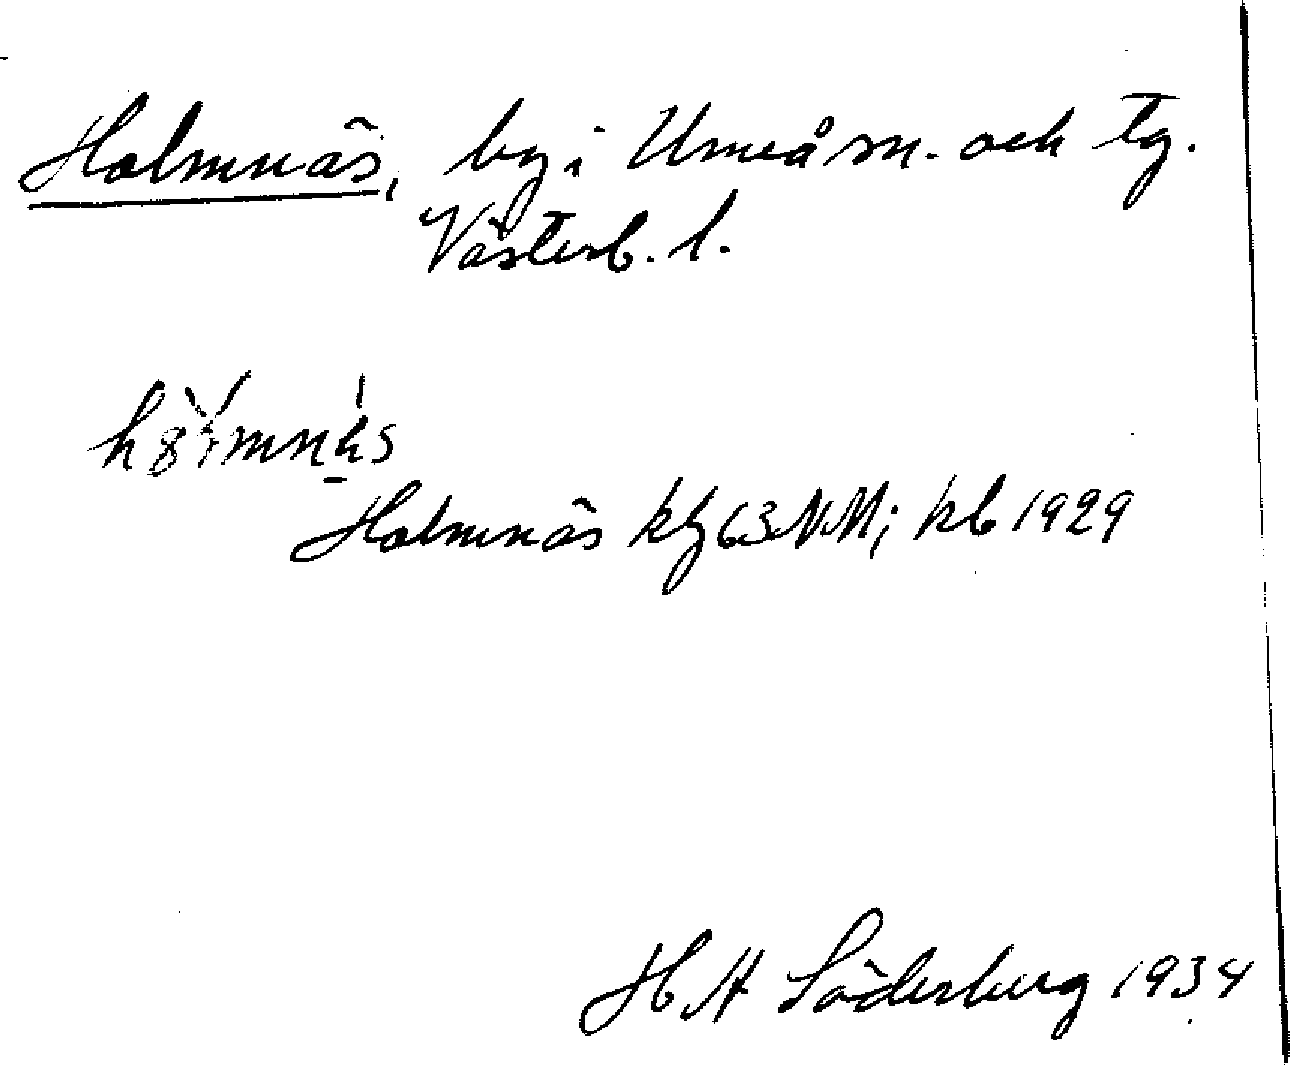 Holmnäs, by i Umeå sn. och tg.
Västerb. l.
Holmnäs kbl 63 NM; kb 1929
H A Söderberg 1934